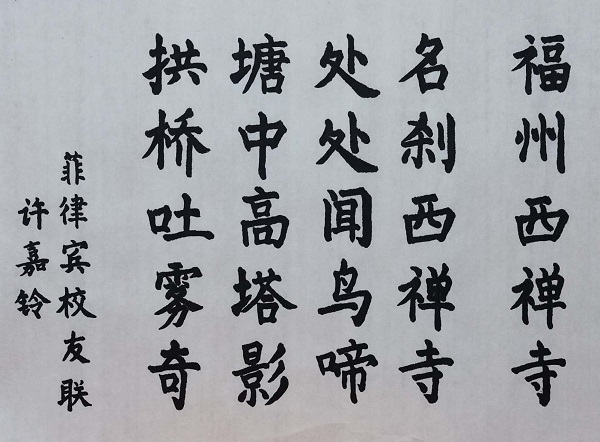 福州西禅寺
名刹西禅寺
处处闻鸟啼
塘中高塔影
拱桥吐雾奇
菲律宾校友联
许嘉铃